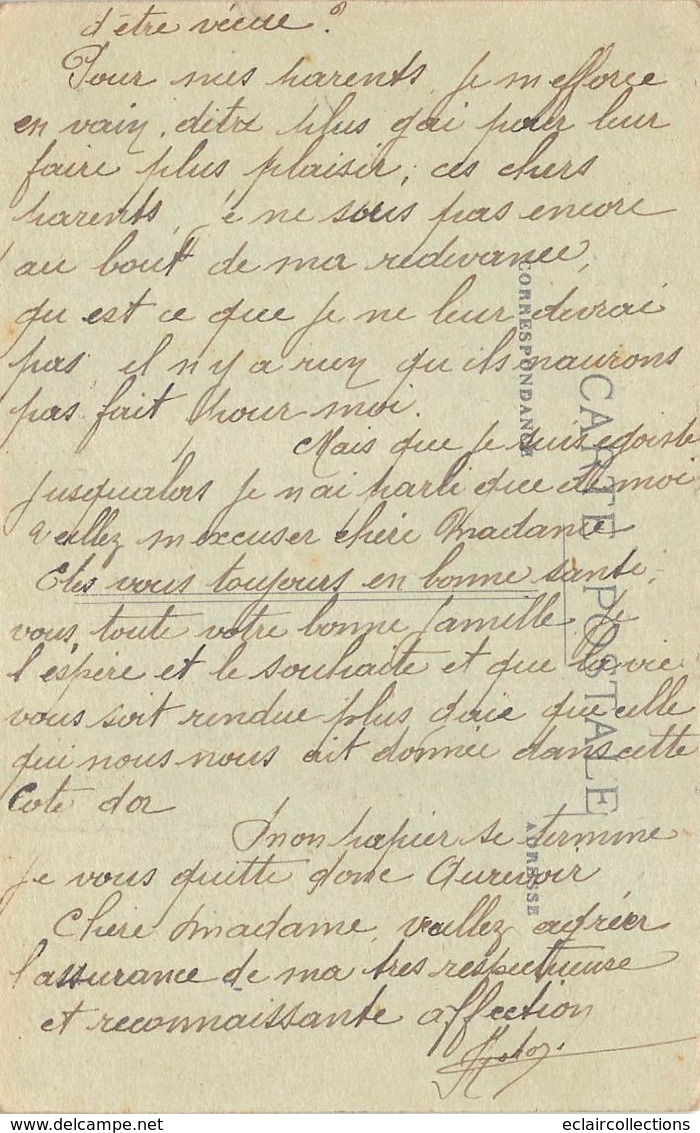 d'être vécue ?
Pour mes parents, je m'efforce
en vain, d'etre plus gai pour leur
faire plus plaisir, ces chers
parents, je ne suis pas encore
au bout de ma redevance,
qu est ce que je ne leur devrai
pas, il n y a rien qu ils n'aurons
pas fait pour moi.
Mais que je suis egoiste
jusqualors je n'ai parlé que de moi
veillez m'excuser chère Madame
Etes vous toujours en bonne santé,
vous, toute votre bonne famille je
l'espère et le souhaite et que la vie
vous soit rendue plus gaie que celle
qui nous nous ait donnée dans cette
Cote d'or
mon papier se termine
je vous quitte donc Aurevoir
Chère Madame, veillez agréer
l'assurance de ma tres respectueuse
et reconnaissante affection
CORRESPONDANCE
CARTE POSTALE
ADRESSE
eclaircollections